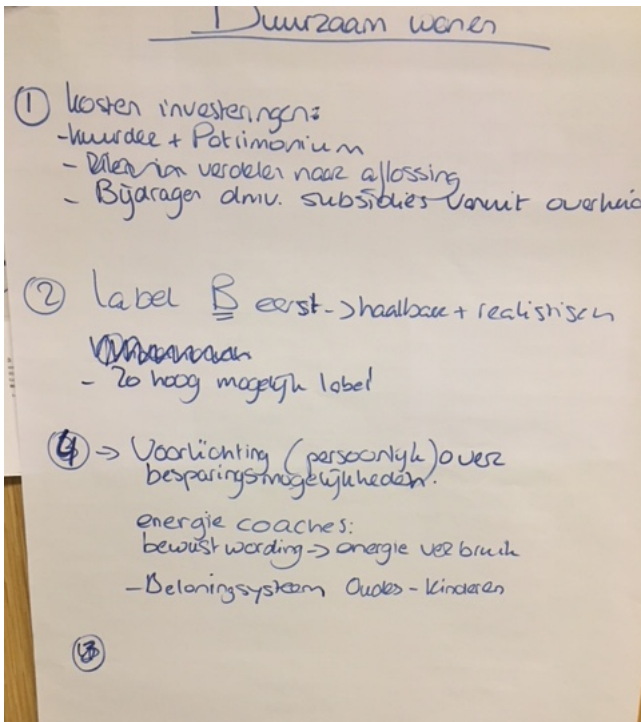 Duurzaam wonen
① kosten investeringen:
- huurder + Patrimonium
- verdelen naar aflossing
- Bijdragen dmv. subsidies vanuit overheid
② label B eerst -> haalbaar + realistisch
- zo hoog mogelijk label
④ -> Voorlichting (persoonlijk) over
besparingsmogelijkheden.
energie coaches:
bewustwording -> energie verbruik
- Beloningsysteem Ouders - kinderen